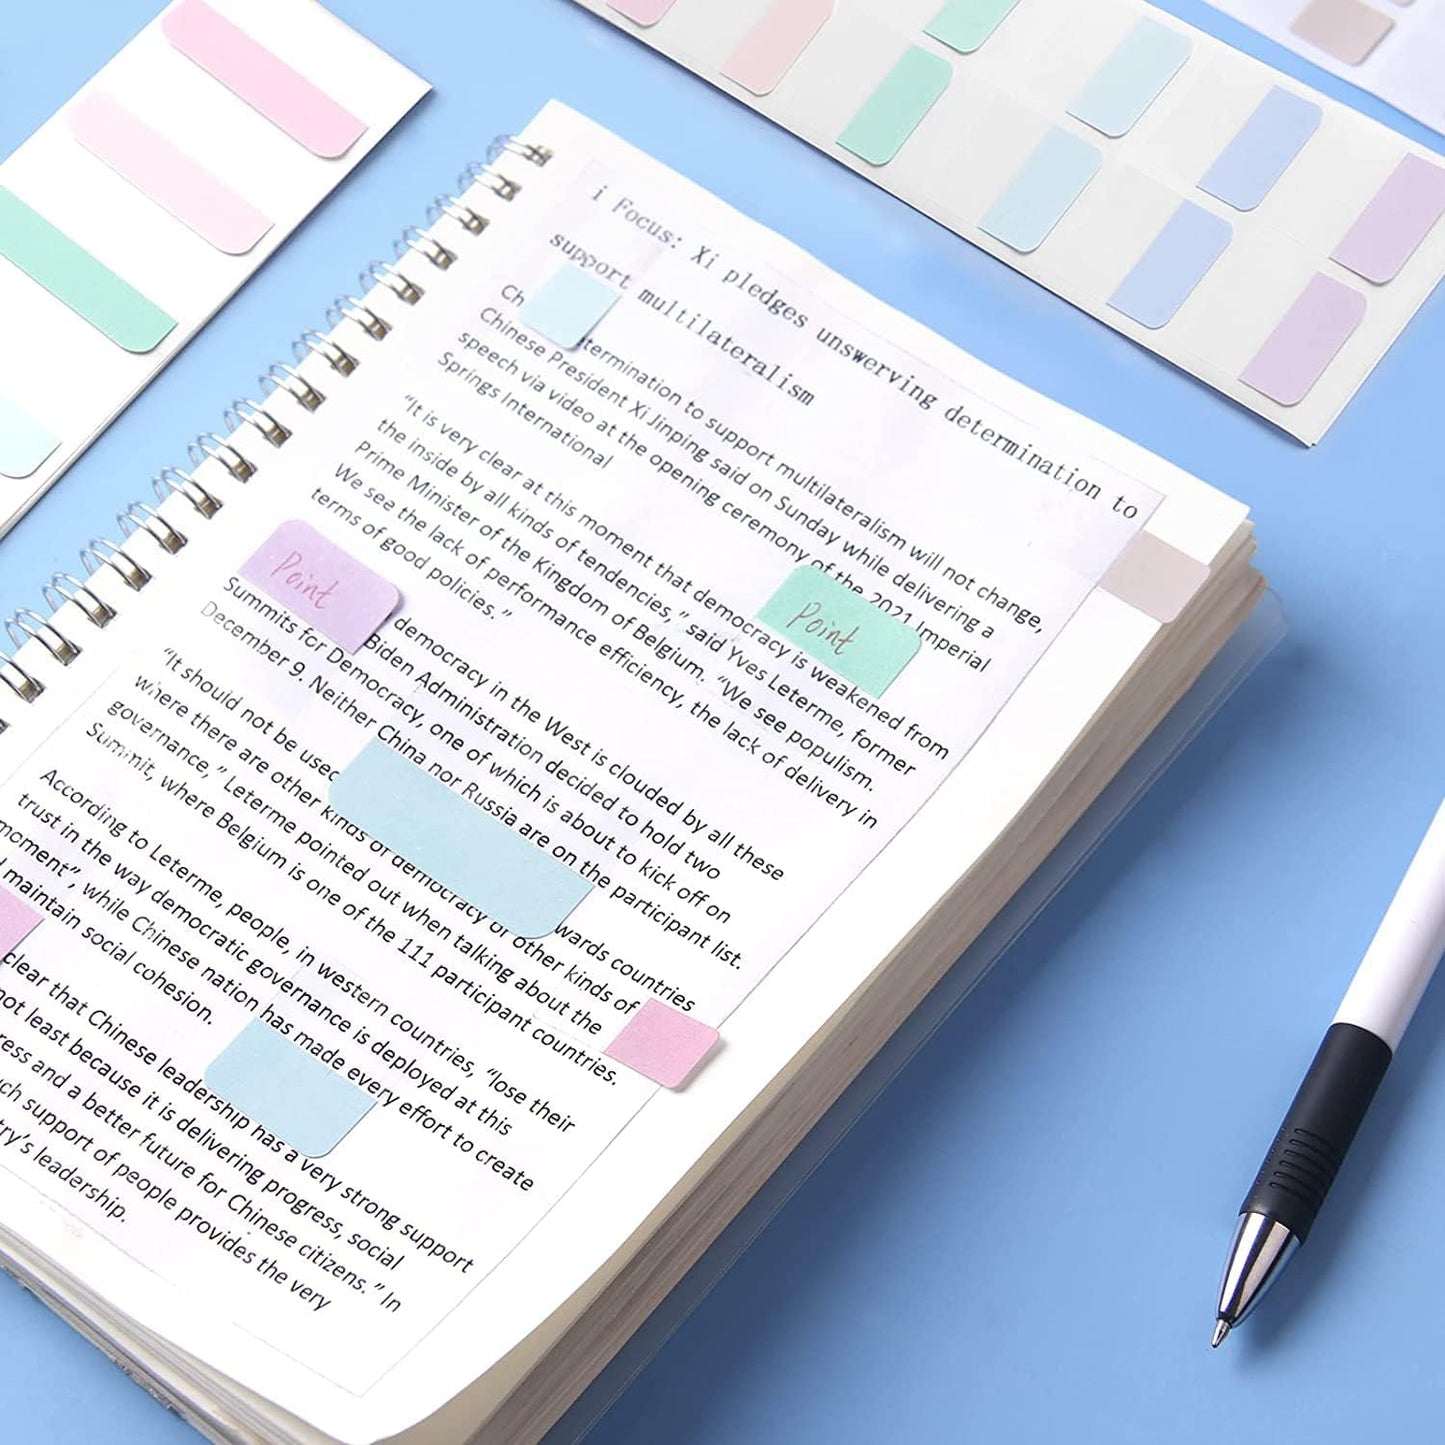 i Focus: Xi pledges unswerving determination to
support multilateralism
Ch termination to support multilateralism will not change,
Chinese President Xi Jinping said on Sunday while delivering a
speech via video at the opening ceremony of the 2021 Imperial
Springs International
“It is very clear at this moment that democracy is weakened from
the inside by all kinds of tendencies,” said Yves Leterme, former
Prime Minister of the Kingdom of Belgium. “We see populism.
We see the lack of performance efficiency, the lack of delivery in
terms of good policies.”
Point
Point
democracy in the West is clouded by all these
Biden Administration decided to hold two
Summits for Democracy, one of which is about to kick off on
December 9. Neither China nor Russia are on the participant list.
“It should not be used wards countries
where there are other kinds of democracy or other kinds of
governance,” Leterme pointed out when talking about the
Summit, where Belgium is one of the 111 participant countries.
According to Leterme, people, in western countries, “lose their
trust in the way democratic governance is deployed at this
moment”, while Chinese nation has made every effort to create
maintain social cohesion.
clear that Chinese leadership has a very strong support
not least because it is delivering progress, social
ress and a better future for Chinese citizens.” In
ch support of people provides the very
ry's leadership.